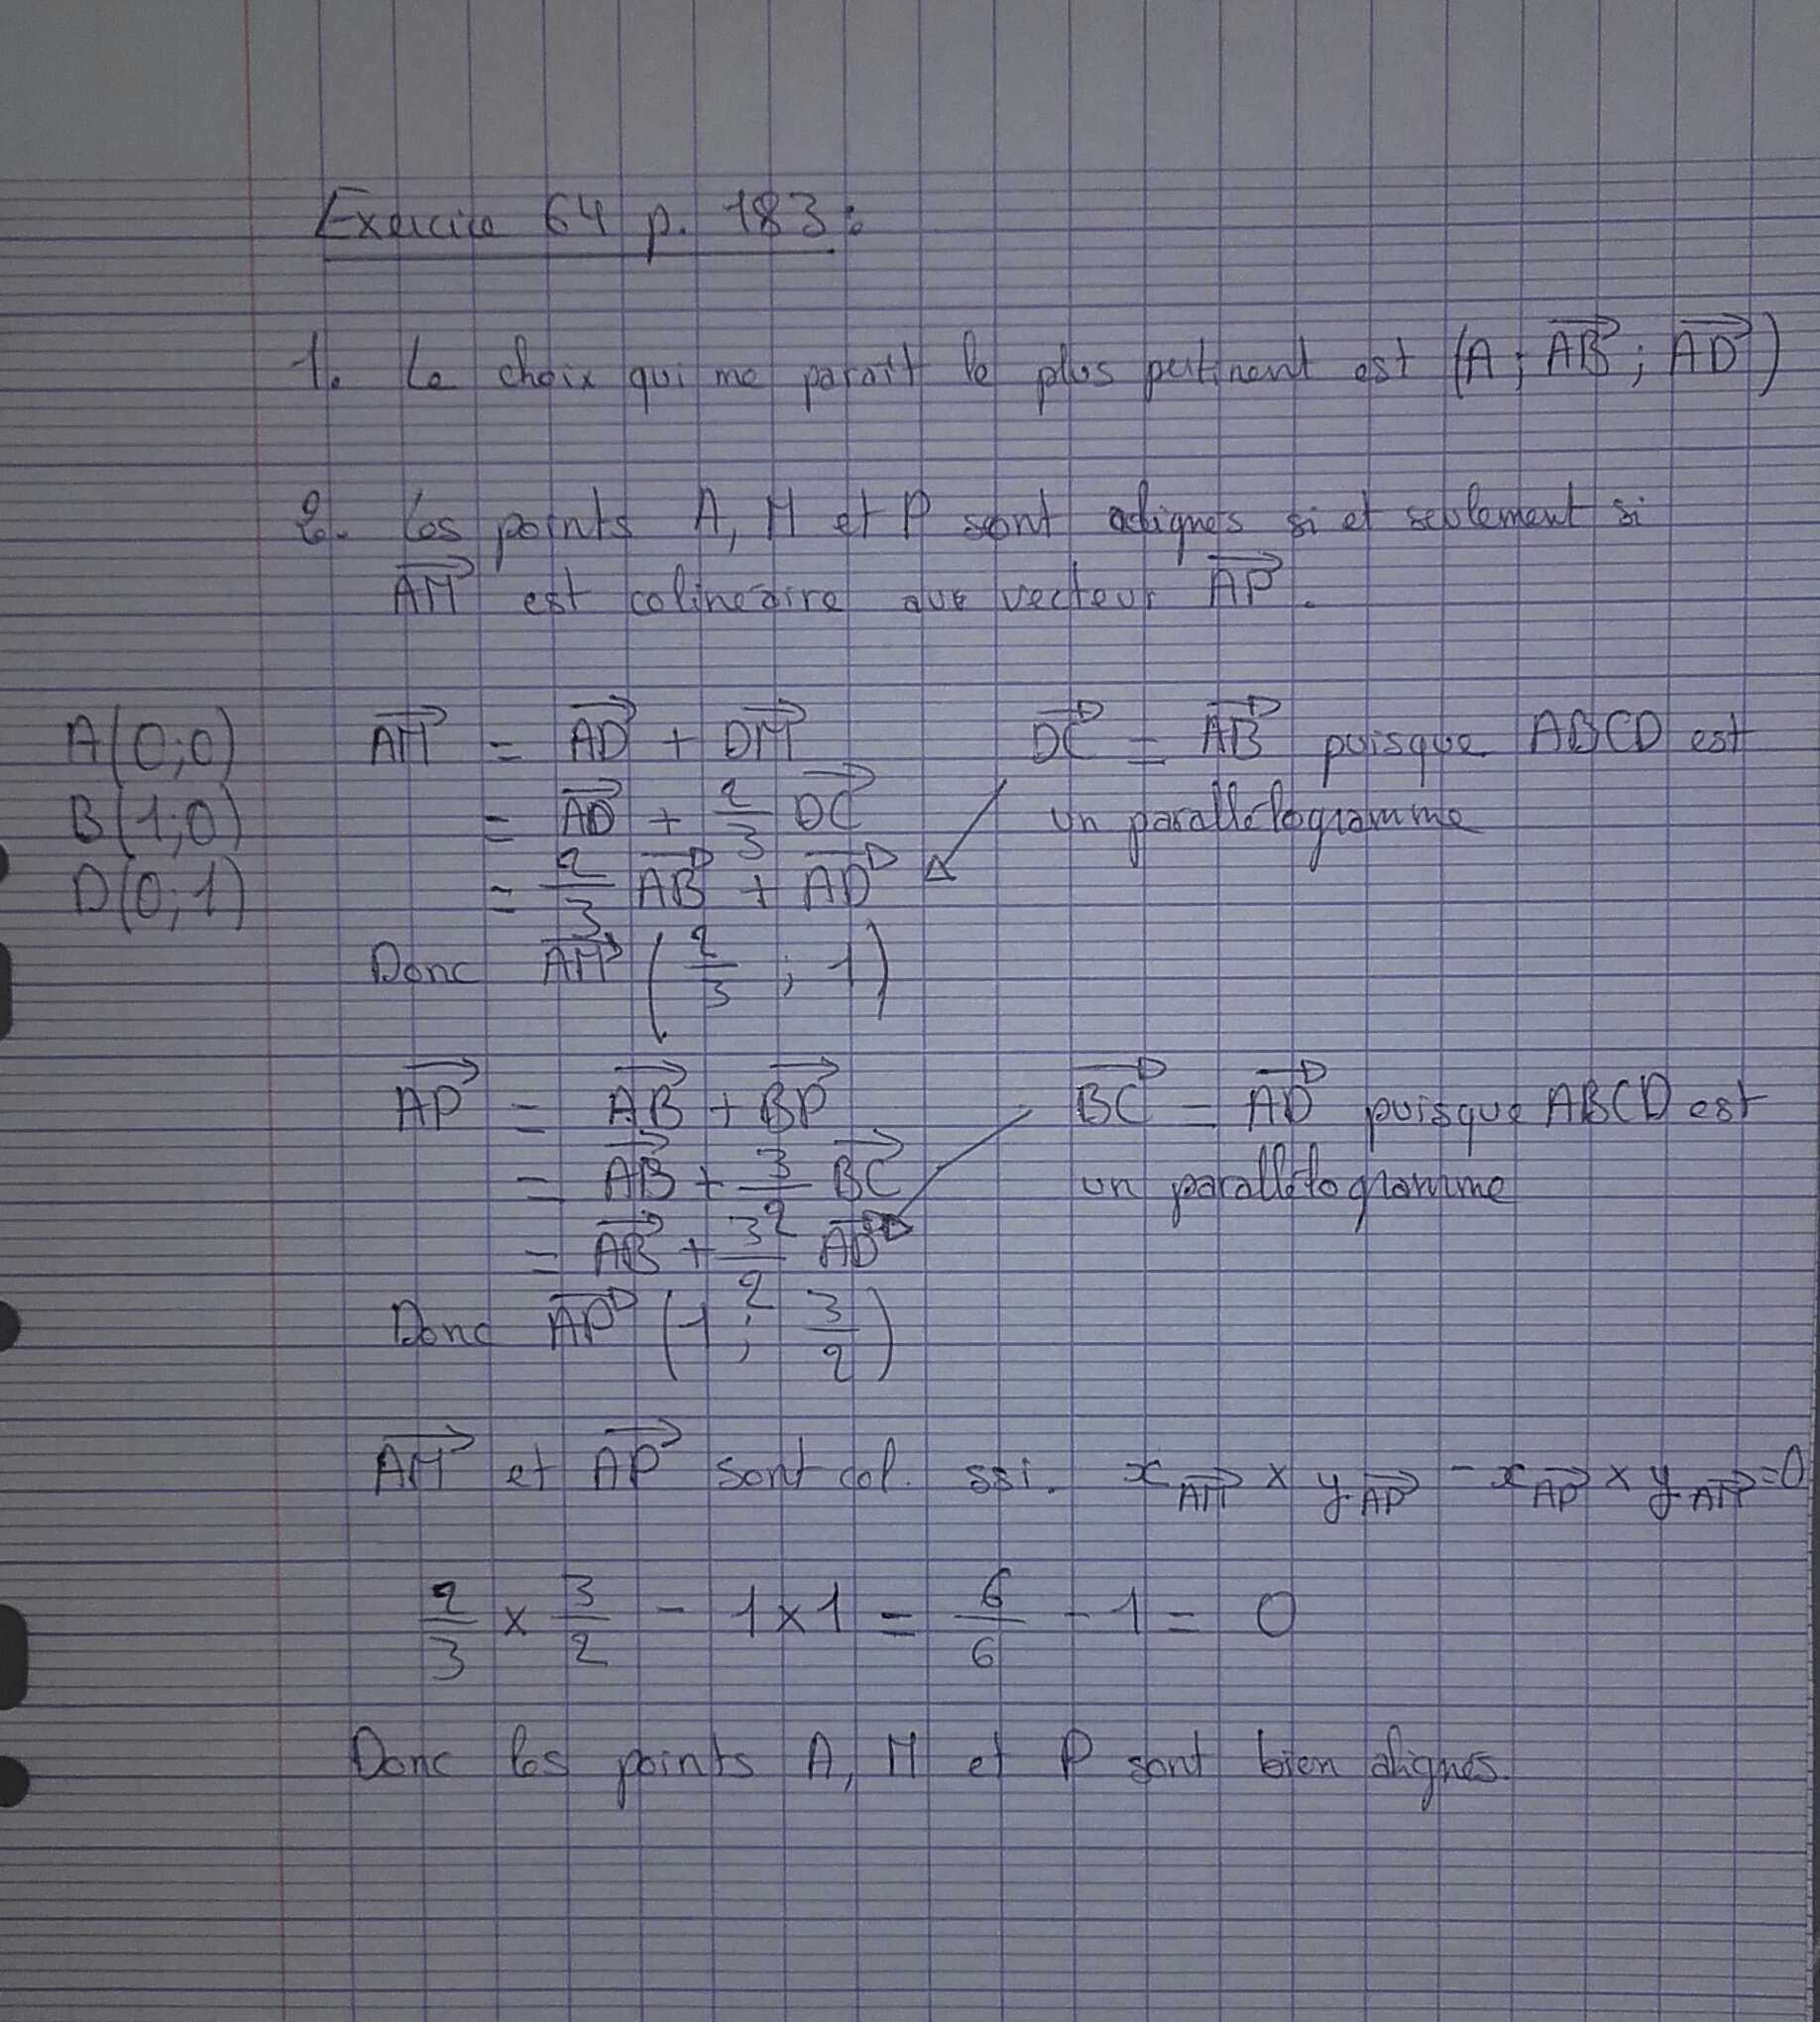 Exercice 64 p. 183 :
1. Le choix qui me paraît le plus pertinent est (A ; AB ; AD)
2. Les points A, M et P sont alignés si et seulement si
AM est colinéaire que vecteur AP.
A(0;0) AM = AD + DM DC = AB puisque ABCD est
B(1;0) = AD + 2/3 DC un parallélogramme
D(0;1) = 2/3 AB + AD
Donc AM (2/3 ; 1)
AP = AB + BP BC = AD puisque ABCD est
= AB + 3/2 BC un parallélogramme
= AB + 3/2 AD
Donc AP (1 ; 3/2)
AM et AP sont col. ssi. x AM × y AP - x AP × y AM = 0
2/3 × 3/2 - 1×1 = 6/6 - 1 = 0
Donc les points A, M et P sont bien alignés.